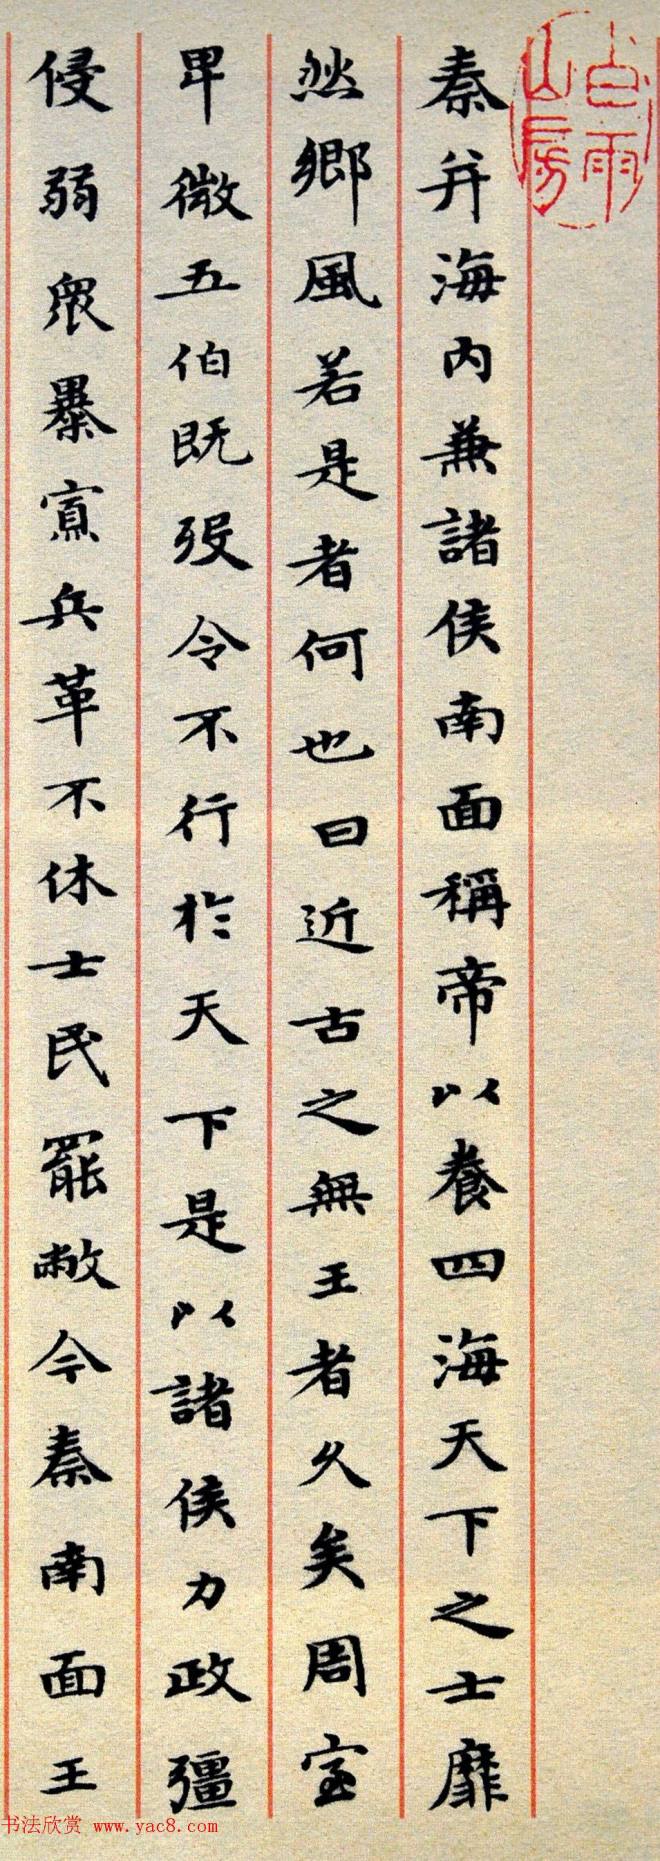 白雨山房
秦并海内兼諸侯南面稱帝以養四海天下之士靡
然鄉風若是者何也曰近古之無王者久矣周室
卑微五伯既歿令不行於天下是以諸侯力政彊
侵弱衆暴寡兵革不休士民罷敝今秦南面王
书法欣赏 www.yac8.com